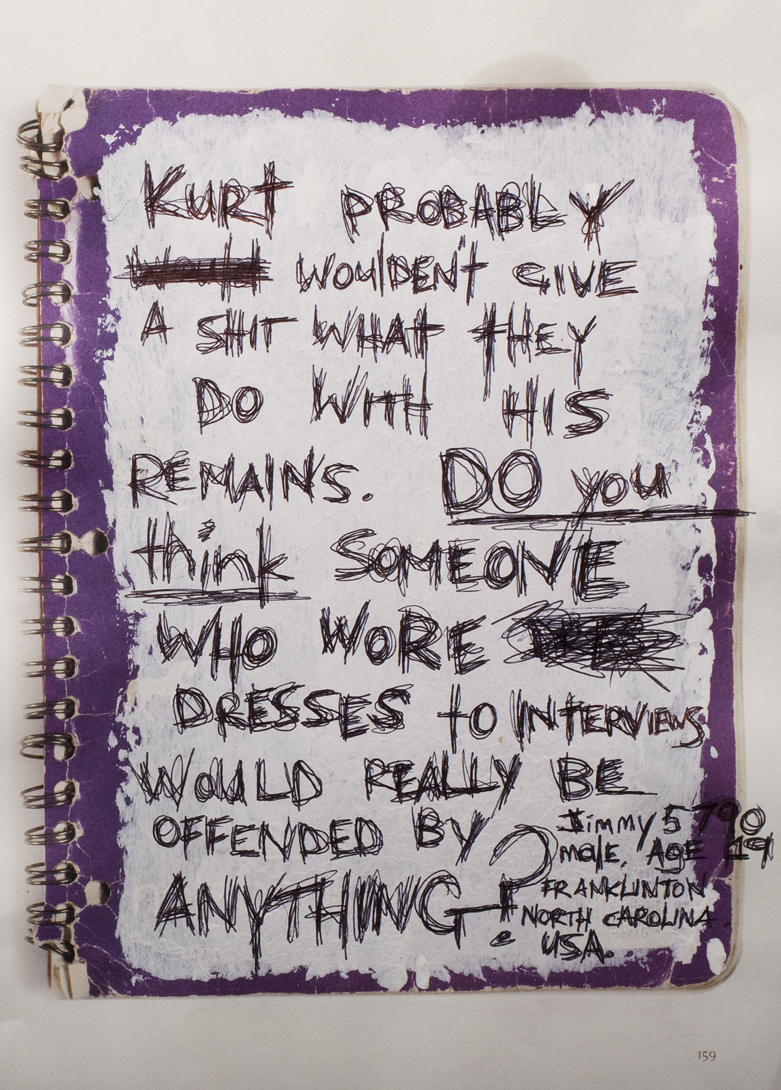 KURT PROBABLY
WOULDEN'T GIVE
A SHIT WHAT THEY
DO WITH HIS
REMAINS. DO you
think SOMEONE
WHO WORE
DRESSES to INTERVIEWS
WOULD REALLY BE
OFFENDED BY
ANYTHING?
Jimmy 5790
male, AGE 19
FRANKLINTON
NORTH CAROLINA
USA.
159